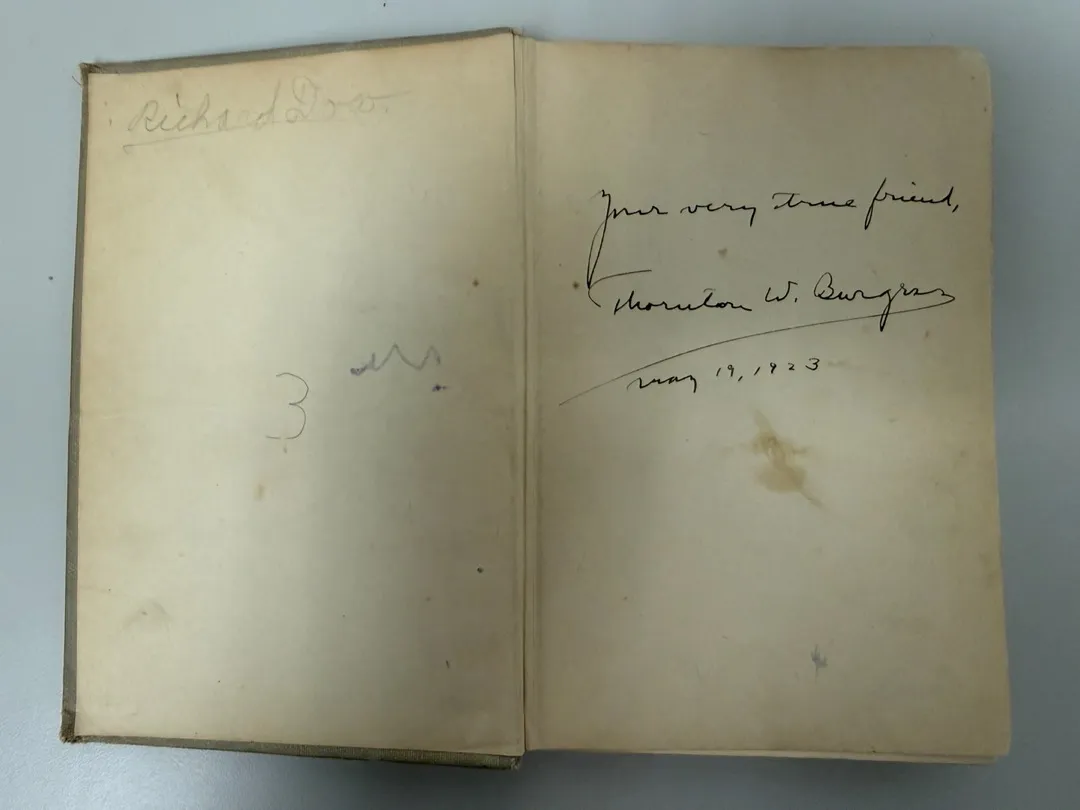 Richard
3
Your very true friend,
Thornton W. Burgess
May 19, 1923